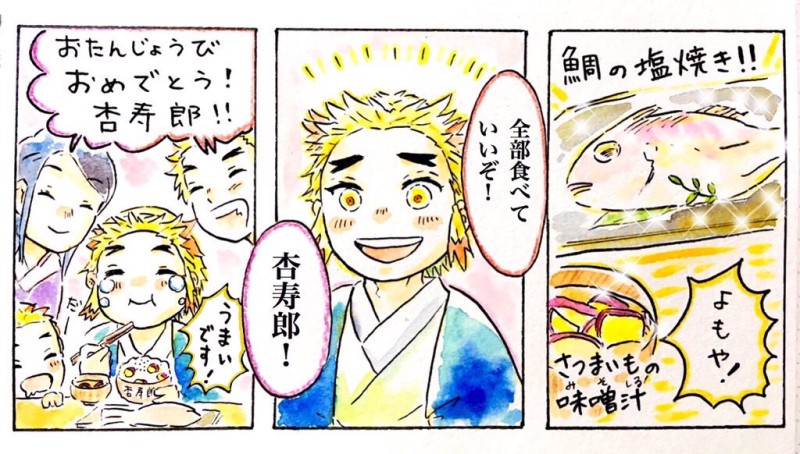 鯛の塩焼き!!
よもや!
さつまいもの
味噌汁
みそしる
全部食べて
いいぞ!
杏寿郎!
おたんじょうび
おめでとう!
杏寿郎!!
うまい
です!
杏寿郎